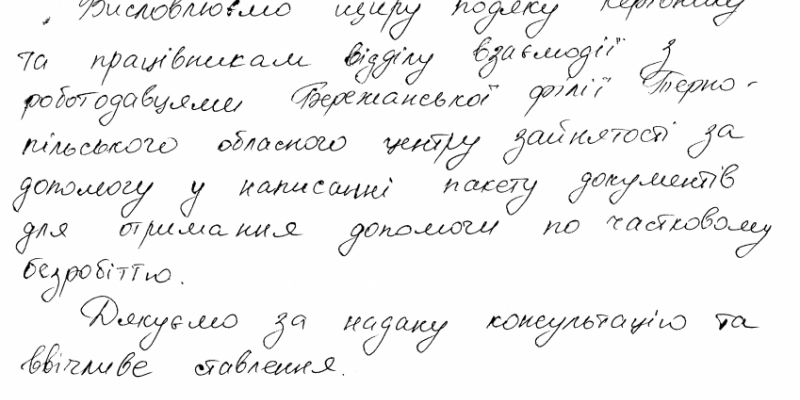 Висловлюємо щиру подяку керівнику
та працівникам відділу взаємодії з
роботодавцями Бережанської філії Терно-
пільського обласного центру зайнятості за
допомогу у написанні пакету документів
для отримання допомоги по частковому
безробіттю.
Дякуємо за надану консультацію та
ввічливе ставлення.